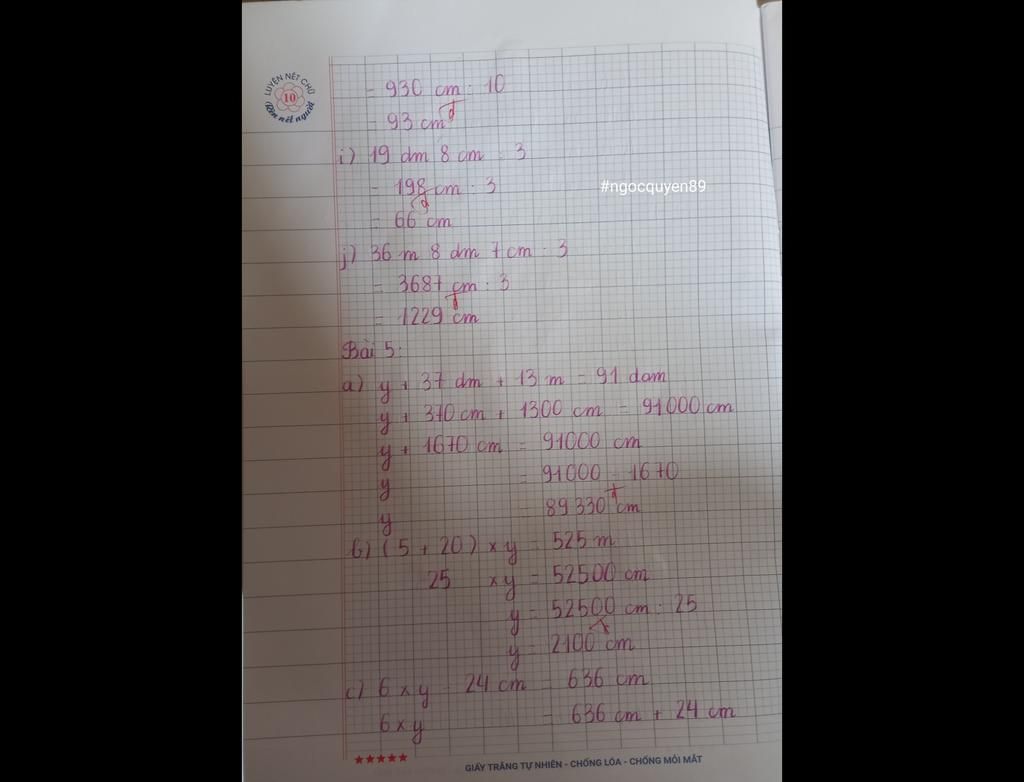 LUYỆN NÉT CHỮ
10
Rèn nết người
= 930 cm : 10
= 93 cm
i) 19 dm 8 cm : 3
= 198 cm : 3
#ngocquyen89
= 66 cm
j) 36 m 8 dm 7 cm : 3
= 3687 cm : 3
= 1229 cm
Bài 5:
a) y + 37 dm + 13 m = 91 dam
y + 370 cm + 1300 cm = 91000 cm
y + 1670 cm = 91000 cm
y = 91000 - 1670
y = 89330 cm
b) (5 + 20) x y = 525 m
25 x y = 52500 cm
y = 52500 cm : 25
y = 2100 cm
c) 6 x y - 24 cm = 636 cm
6 x y = 636 cm + 24 cm
GIẤY TRẮNG TỰ NHIÊN - CHỐNG LÓA - CHỐNG MỎI MẮT